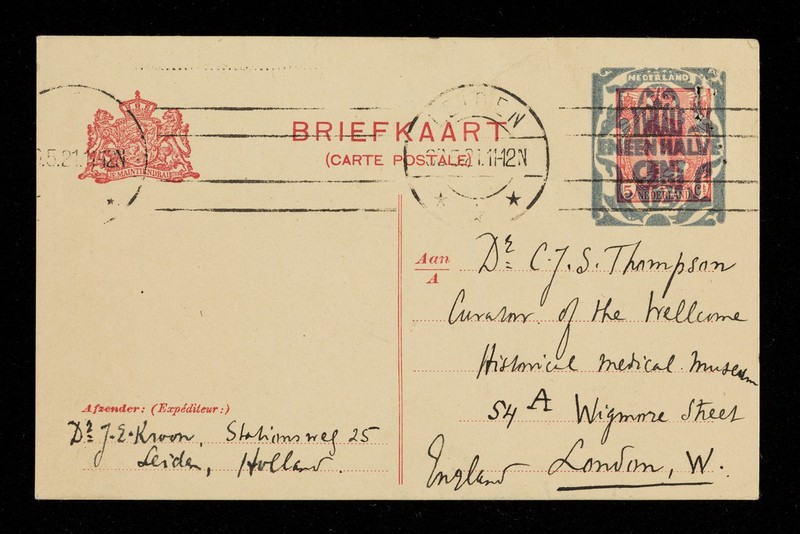 NEDERLAND
LEIDEN
BRIEFKAART
(CARTE POSTALE)
JE MAINTIENDRAI
.5.21.11-12N
.5.21.11-12N
TWAALF
EN EEN HALVE
CENT
5 NEDERLAND Ct
Aan
A
Dr. C.J.S. Thompson
Curator of the Wellcome
Historical Medical Museum
54 A Wigmore Street
London, W.
England
Afzender: (Expéditeur:)
Dr. J.E. Kroon, Stationsweg 25
Leiden, Holland.